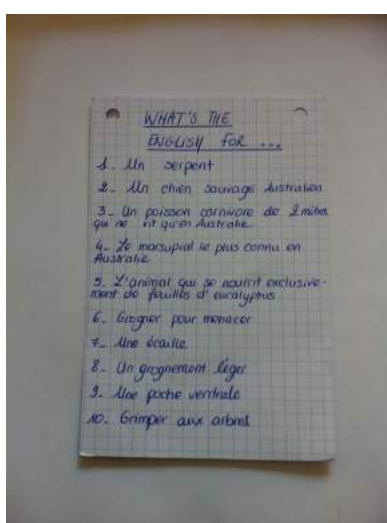 WHAT'S THE
ENGLISH FOR ...
1_ Un serpent
2_ Un chien sauvage Australien
3_ Un poisson carnivore de 2 mètres
qui ne vit qu'en Australie
4_ Le marsupial le plus connu en
Australie
5_ L'animal qui se nourrit exclusive-
ment de feuilles d'eucalyptus
6_ Grogner pour menacer
7_ Une écaille
8_ Un grognement léger
9_ Une poche ventrale
10_ Grimper aux arbres